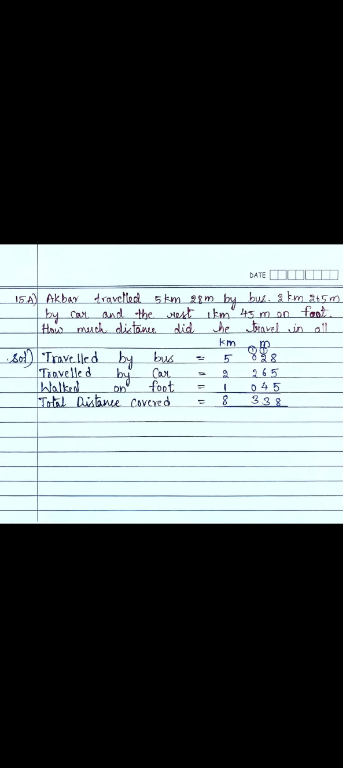 DATE
15A) Akbar travelled 5km 28m by bus. 2km 265m
by car and the rest 1km 45m on foot.
How much distance did he travel in all
km m
① ①
Sol) Travelled by bus = 5 028
Travelled by Car = 2 265
Walked on foot = 1 045
Total Distance covered = 8 338